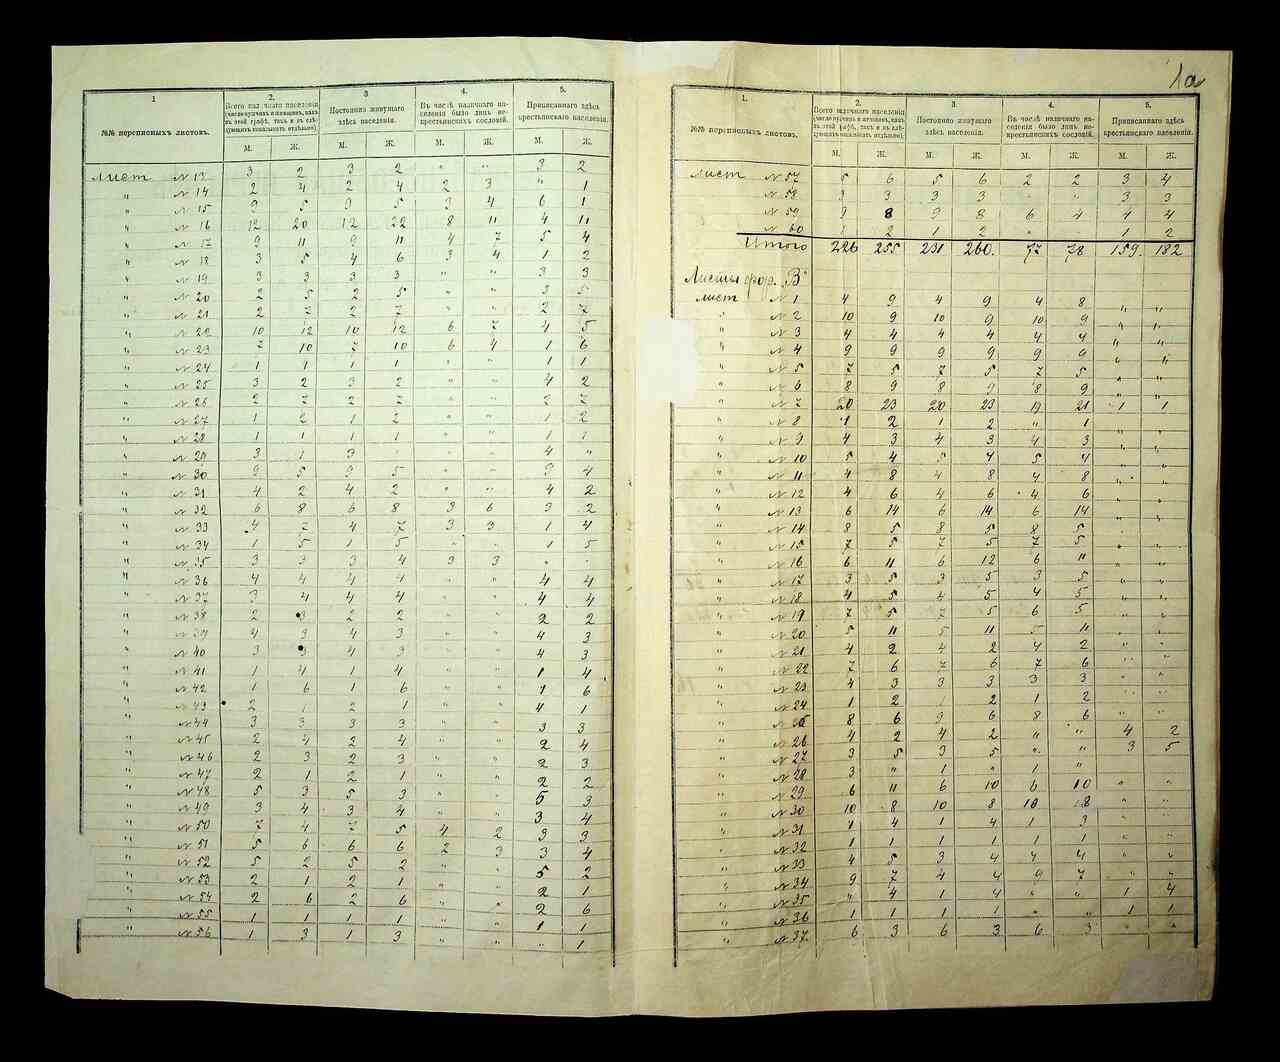 1
2.
3
4.
5.
№№ переписныхъ листовъ.
Всего наличнаго населенія
(число мужчинъ и женщинъ, какъ
въ этой графѣ, такъ и въ слѣ-
дующихъ показывать отдѣльно)
Постоянно живущаго
здѣсь населенія.
Въ числѣ наличнаго на-
селенія было лицъ не-
крестьянскихъ сословій.
Приписаннаго здѣсь
крестьянскаго населенія.
М. Ж. М. Ж. М. Ж. М. Ж.
Листъ № 13 3 2 3 2 " " 3 2
" № 14 2 4 2 4 2 3 " 1
" № 15 9 5 9 5 3 4 6 1
" № 16 12 20 12 22 8 11 4 11
" № 17 9 11 9 11 4 7 5 4
" № 18 3 5 4 6 3 4 1 2
" № 19 3 3 3 3 " " 3 3
" № 20 2 5 2 5 " " 3 5
" № 21 2 7 2 7 " " 2 7
" № 22 10 12 10 12 6 7 4 5
" № 23 7 10 7 10 6 4 1 6
" № 24 1 1 1 1 " " 1 1
" № 25 3 2 3 2 " " 4 2
" № 26 2 7 2 7 " " 2 7
" № 27 1 2 1 2 " " 1 2
" № 28 1 1 1 1 " " 1 1
" № 29 3 1 3 " " 4 "
" № 30 9 5 9 5 " " 9 4
" № 31 4 2 4 2 " " 4 2
" № 32 6 8 6 8 3 6 3 2
" № 33 4 7 4 7 3 3 1 4
" № 34 1 5 1 5 " " 1 5
" № 35 3 3 3 4 3 3 " "
" № 36 4 4 4 4 " " 4 4
" № 37 3 4 4 4 " " 4 4
" № 38 2 3 2 2 " " 2 2
" № 39 4 3 4 3 " " 4 3
" № 40 3 3 4 3 " " 4 3
" № 41 1 4 1 4 " " 1 4
" № 42 1 6 1 6 " " 1 6
" № 43 2 1 2 1 " " 4 1
" № 44 3 3 3 3 " " 3 3
" № 45 2 4 2 4 " " 2 4
" № 46 2 3 2 3 " " 2 3
" № 47 2 1 2 1 " " 2 2
" № 48 5 3 5 3 " " 5 3
" № 49 3 4 3 4 " " 3 4
" № 50 7 4 7 5 4 2 3 3
" № 51 5 6 6 6 2 3 3 4
" № 52 5 2 5 2 " " 5 2
" № 53 2 1 2 1 " " 2 1
" № 54 2 6 2 6 " " 2 6
" № 55 1 1 1 1 " " 1 1
" № 56 1 3 1 3 " " " 1
1а
1.
2.
3.
4.
5.
№№ переписныхъ листовъ.
Всего наличнаго населенія
(число мужчинъ и женщинъ, какъ
въ этой графѣ, такъ и въ слѣ-
дующихъ показывать отдѣльно).
Постоянно живущаго
здѣсь населенія.
Въ числѣ наличнаго на-
селенія было лицъ не-
крестьянскихъ сословій.
Приписаннаго здѣсь
крестьянскаго населенія.
М. Ж. М. Ж. М. Ж. М. Ж.
Листъ № 57 5 6 5 6 2 2 3 4
" № 58 3 3 3 3 " " 3 3
" № 59 9 8 9 8 6 4 4 4
" № 60 1 2 1 2 " " 1 2
Итого 226 255 231 260. 77 78 159. 182
Листы фор. В"
лист № 1 4 9 4 9 4 8 " "
" № 2 10 9 10 9 10 9 " "
" № 3 4 4 4 4 4 4 " "
" № 4 9 9 9 9 9 9 " "
" № 5 7 5 7 5 7 5 " "
" № 6 8 9 8 9 8 9 " "
" № 7 20 23 20 23 19 21 1 1
" № 8 1 2 1 2 " 1 " "
" № 9 4 3 4 3 4 3 " "
" № 10 5 4 5 4 5 4 " "
" № 11 4 8 4 8 4 8 " "
" № 12 4 6 4 6 4 6 " "
" № 13 6 14 6 14 6 14 " "
" № 14 8 5 8 5 8 5 " "
" № 15 7 5 7 5 7 5 " "
" № 16 6 11 6 12 6 11 " "
" № 17 3 5 3 5 3 5 " "
" № 18 4 5 4 5 4 5 " "
" № 19 7 5 7 5 6 5 " "
" № 20 5 11 5 11 5 11 " "
" № 21 4 2 4 2 4 2 " "
" № 22 7 6 7 6 7 6 " "
" № 23 4 3 3 3 3 3 " "
" № 24 1 2 1 2 1 2 " "
" № 25 8 6 9 6 8 6 " "
" № 26 4 2 4 2 " " 4 2
" № 27 3 5 3 5 " " 3 5
" № 28 3 " 1 " 1 "
" № 29 6 11 6 10 6 10 " "
" № 30 10 8 10 8 10 8 " "
" № 31 1 4 1 4 1 3 " "
" № 32 1 1 1 1 1 1 " "
" № 33 4 5 3 4 4 4 " "
" № 34 9 7 4 4 9 7 " "
" № 35 " 4 1 4 " " 1 4
" № 36 1 1 1 1 " " 1 1
" № 37. 6 3 6 3 6 3 " "